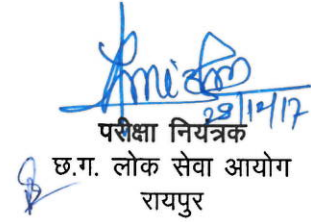 28/12/17
परीक्षा नियंत्रक
छ.ग. लोक सेवा आयोग
रायपुर